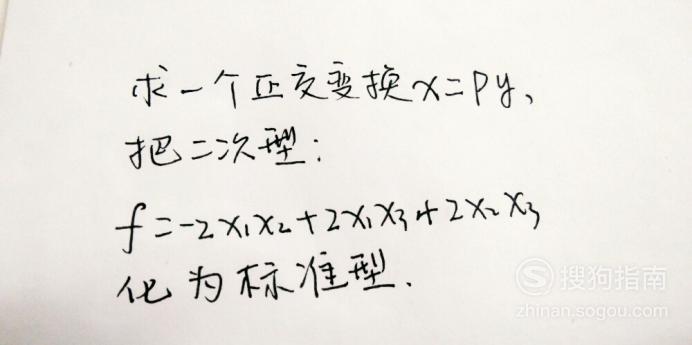 求一个正交变换x=Py,
把二次型:
f=-2x₁x₂+2x₁x₃+2x₂x₃
化为标准型.
搜狗指南
zhinan.sogou.com